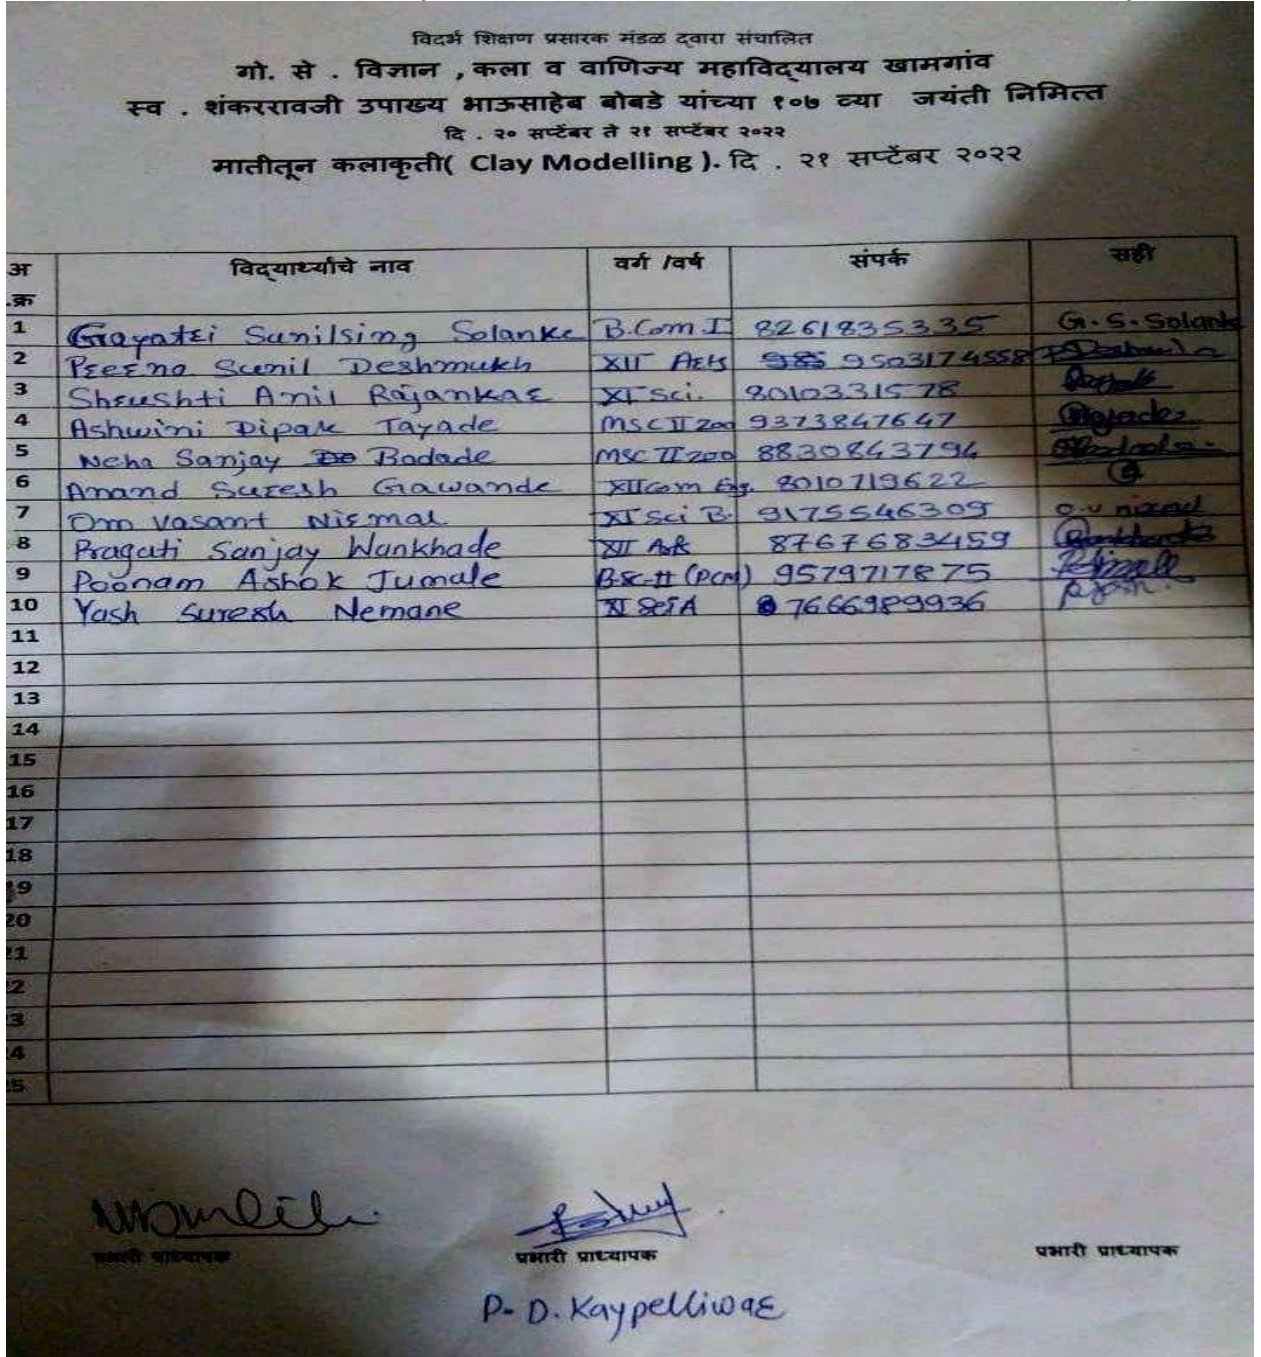 विदर्भ शिक्षण प्रसारक मंडळ द्वारा संचालित
गो. से . विज्ञान , कला व वाणिज्य महाविद्यालय खामगांव
स्व . शंकररावजी उपाख्य भाऊसाहेब बोबडे यांच्या १०७ व्या जयंती निमित्त
दि . २० सप्टेंबर ते २१ सप्टेंबर २०२२
मातीतून कलाकृती( Clay Modelling ). दि . २१ सप्टेंबर २०२२
अ.क्र विद्यार्थ्याचे नाव वर्ग /वर्ष संपर्क सही
1 Gayatri Sunilsing Solanke B.Com I 8261835335 G.S.Solank
2 Prerna Sunil Deshmukh XII Arts 9503174558
3 Shrushti Anil Rajankar XI Sci. 8010331578
4 Ashwini Dipak Tayade MSC II zoo 9373847647
5 Neha Sanjay Badade MSC II zoo 8830843794
6 Anand Suresh Gawande XII com Eng. 8010719622
7 Om Vasant Nirmal XI Sci B. 9175546309 O.V nirmal
8 Pragati Sanjay Wankhade XII Art 8767683459
9 Poonam Ashok Jumale B.SC-II (PCM) 9579717875
10 Yash Suresh Nemane XI Sci A 7666989936
11
12
13
14
15
16
17
18
19
20
21
22
23
24
25
प्रभारी प्राध्यापक प्रभारी प्राध्यापक प्रभारी प्राध्यापक
P. D. Kaypelliwar